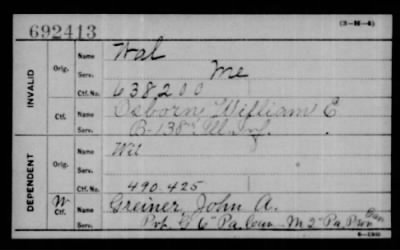 692413
(3-M-4)
INVALID
Orig.
Name Wal
Serv. Me
Ctf. No. 638200
Ctf.
Name Osborn, William E
Serv. B-138" Ill. Inf.
DEPENDENT
Orig.
Name Wil
Serv.
Ctf. No. 490.425
W Ctf.
Name Greiner, John A.
Serv. Pvt. G 6" Pa. Cav. M 2" Pa. Prov